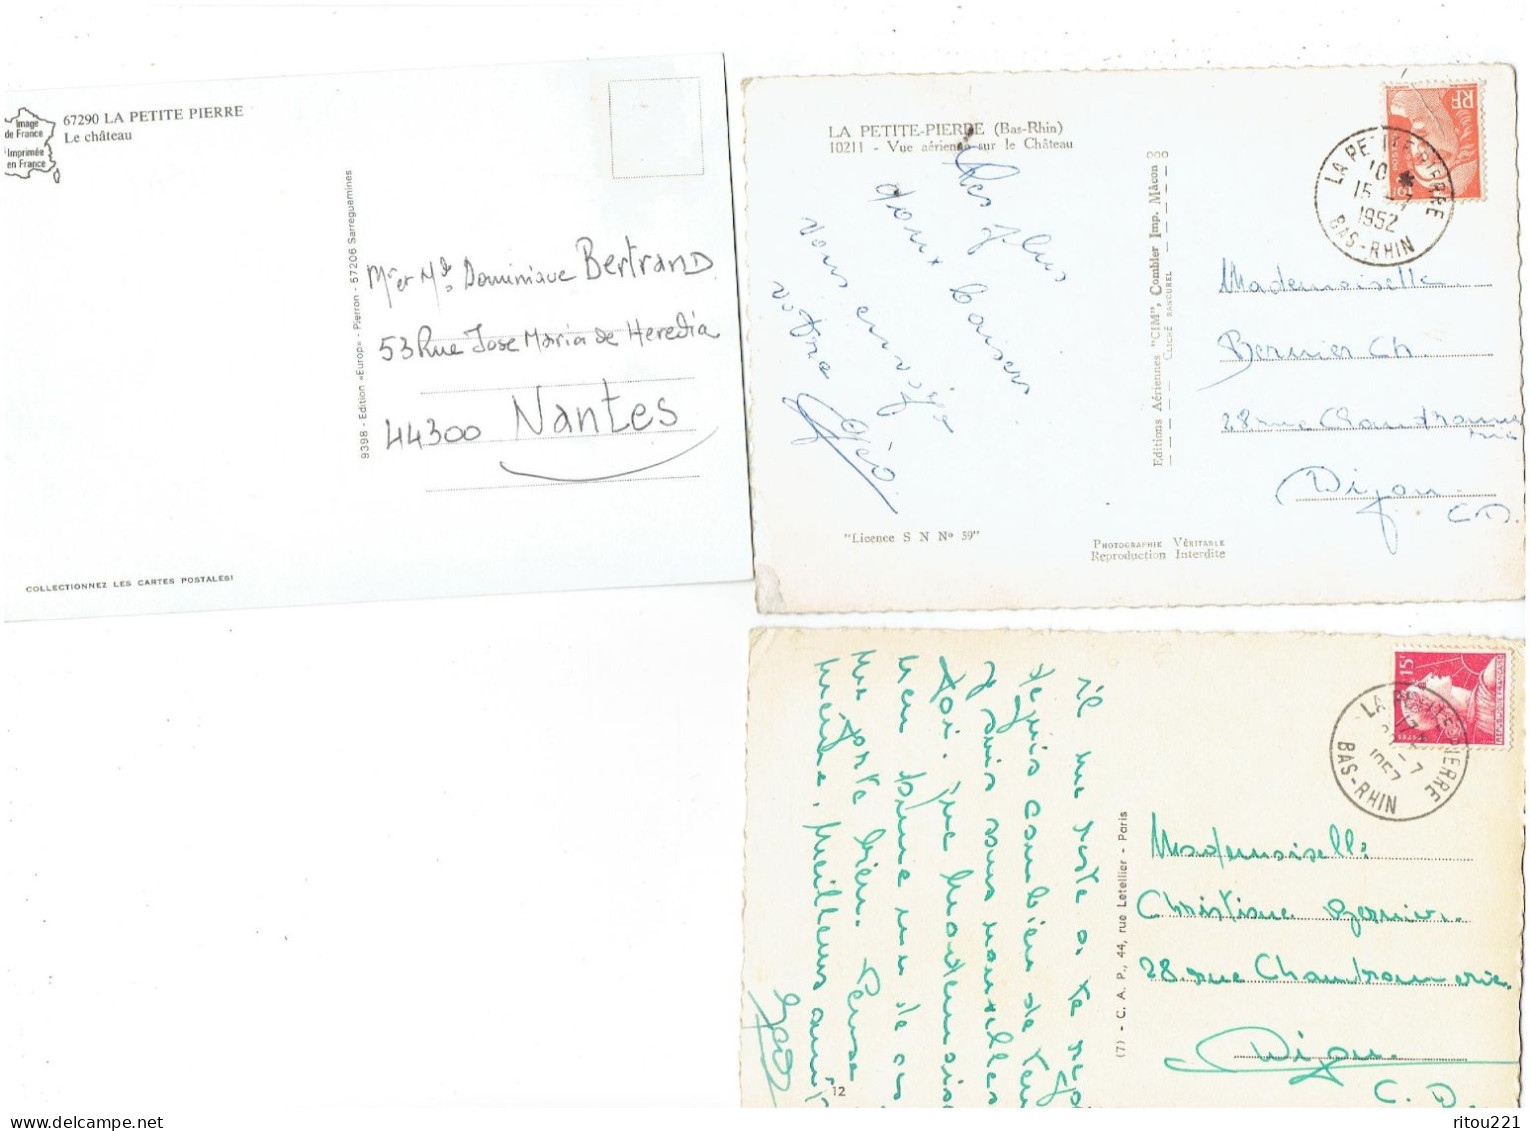 Image
de France
Imprimée
en France
67290 LA PETITE PIERRE
Le château
9398 - Edition «Europ» - Pierron - 57206 Sarreguemines
Mr et Mde Dominique Bertrand
53 Rue Jose Maria de Heredia
44300 Nantes
COLLECTIONNEZ LES CARTES POSTALES!
LA PETITE-PIERRE (Bas-Rhin)
10211 - Vue aérienne sur le Château
Les plus
doux baisers
vous envoie
votre Géo
"Licence S N No 59"
Editions Aériennes "CIM", Combier Imp. Mâcon
CLICHÉ RANCUREL
PHOTOGRAPHIE VÉRITABLE
Reproduction Interdite
RF
LA PETITE PIERRE
10 *
15 -7
1952
BAS-RHIN
Mademoiselle
Bernier Ch.
28 rue Chaudronnerie
Dijon
C.D.
il me reste à te
depuis combien de
je suis sans nouvelles
toi. que
me porte bien.
12
(7) - C. A. P., 44, rue Letellier - Paris
15F
REPUBLIQUE FRANÇAISE
LA PETITE PIERRE
17
-7
1957
BAS-RHIN
Mademoiselle
Christiane Bernier.
28 rue Chaudronnerie
Dijon.
C. D.
ritou221